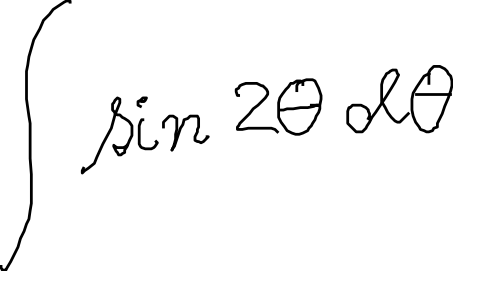 ∫ sin 2θ dθ